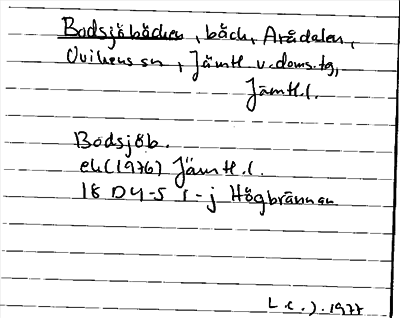 Bodsjöbäcken, bäck, Arådalen,
Ovikens sn, Jämtl v. doms. tg,
Jämtl. l.
Bodsjöb.
ek (1976) Jämtl. l.
18 D 4-5 i-j Högbrännan
L. E. J. 1977